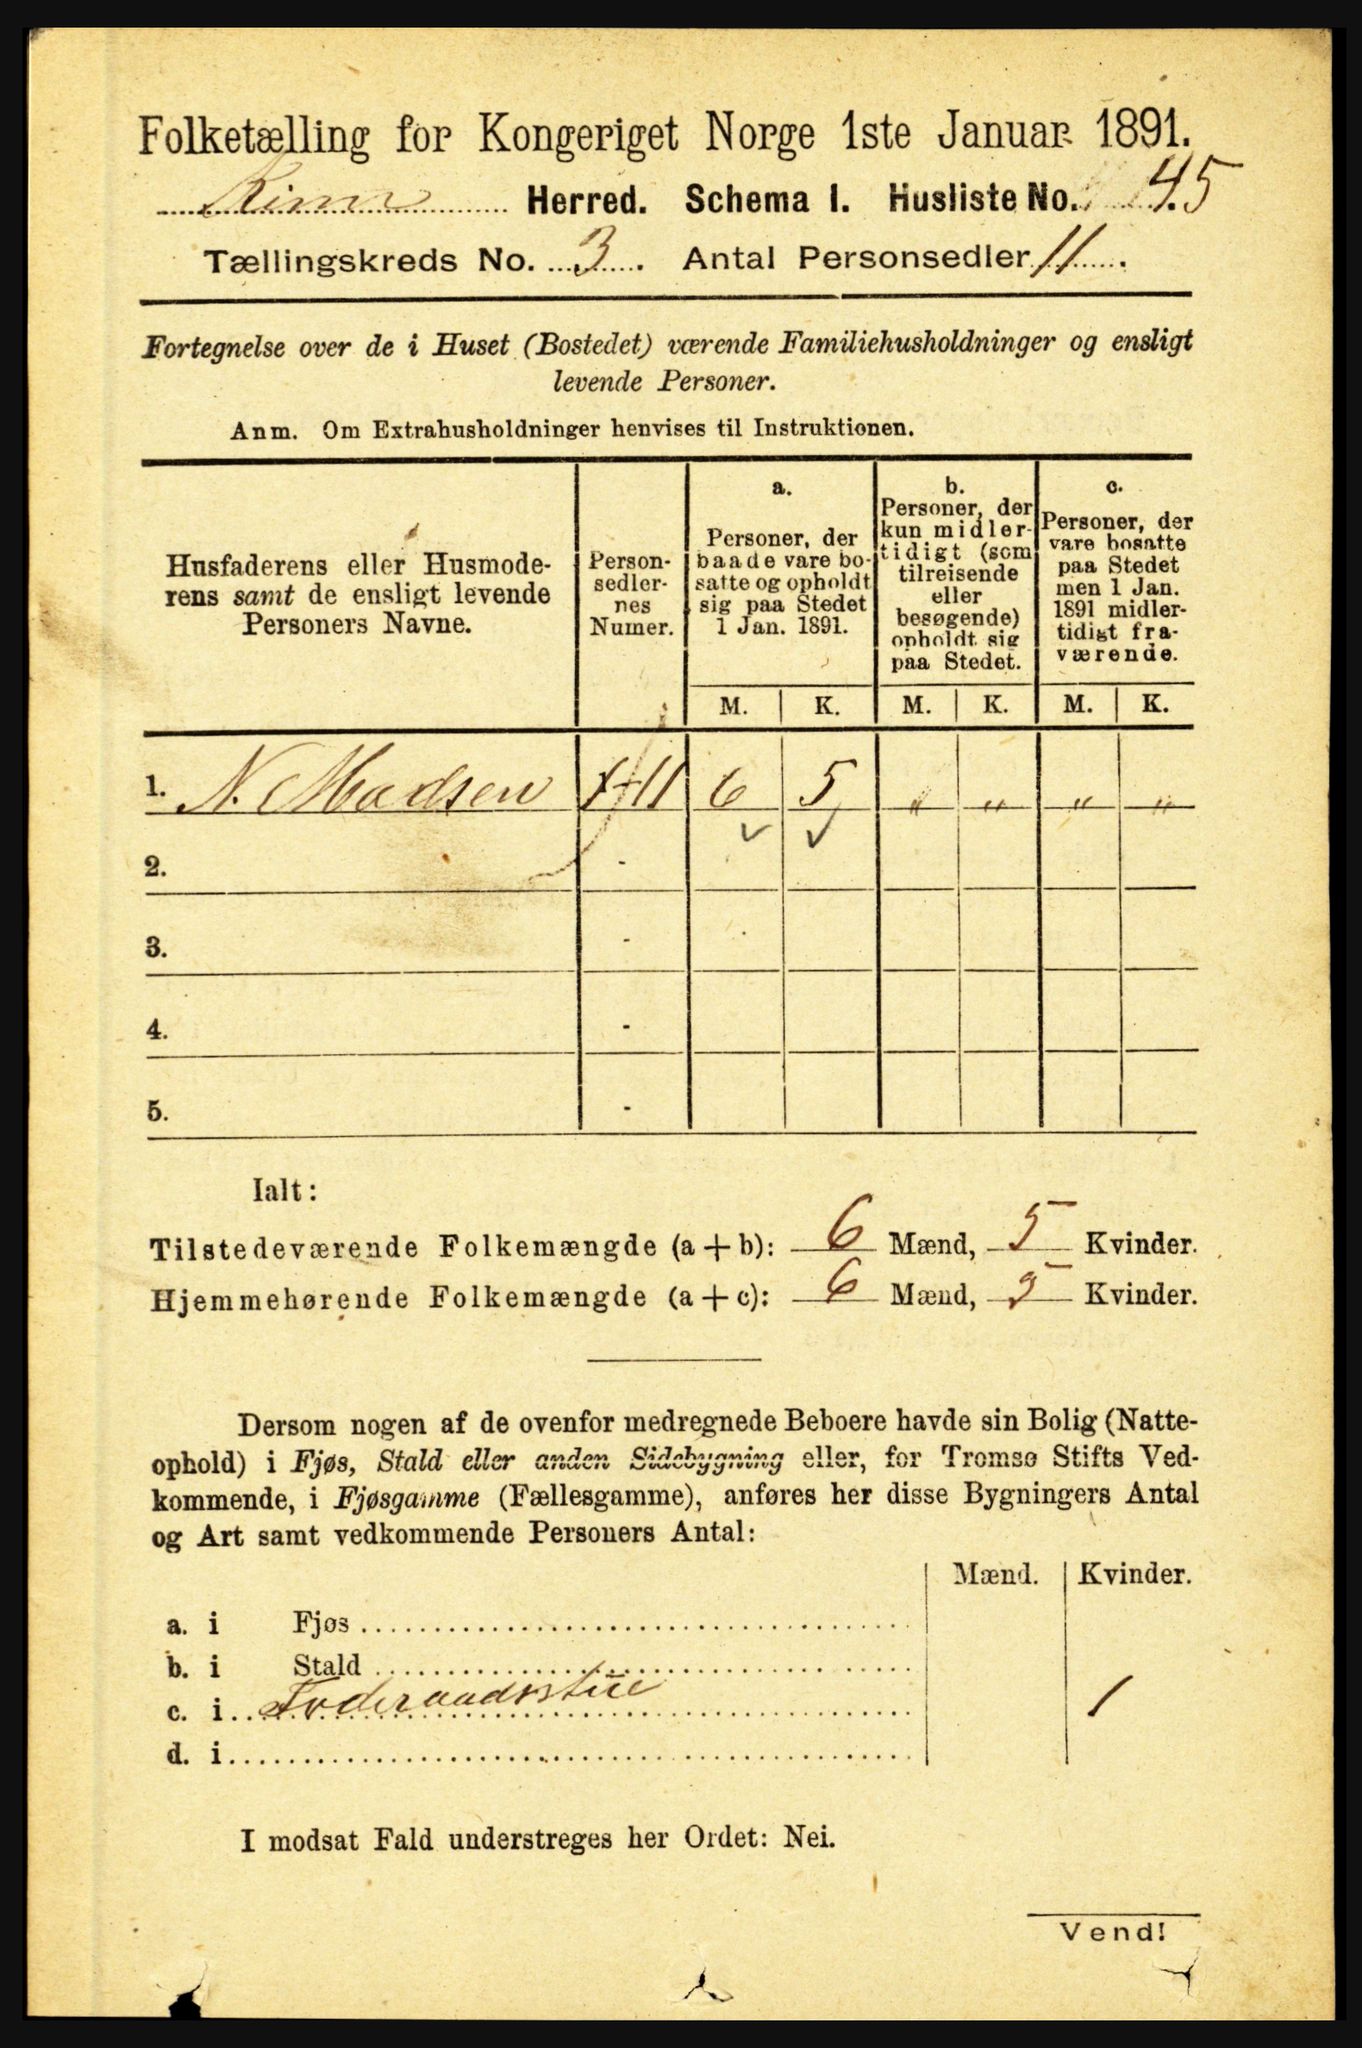 Folketælling for Kongeriget Norge 1ste Januar 1891.
Kinn Herred. Schema I. Husliste No. 45
Tællingskreds No. 3. Antal Personsedler 11.
Fortegnelse over de i Huset (Bostedet) værende Familiehusholdninger og ensligt
levende Personer.
Anm. Om Extrahusholdninger henvises til Instruktionen.
Husfaderens eller Husmode-
rens samt de ensligt levende
Personers Navne.
Person-
sedler-
nes
Numer.
a.
Personer, der
baade vare bo-
satte og opholdt
sig paa Stedet
1 Jan. 1891.
b.
Personer, der
kun midler-
tidigt (som
tilreisende
eller
besøgende)
opholdt sig
paa Stedet.
c.
Personer, der
vare bosatte
paa Stedet
men 1 Jan.
1891 midler-
tidigt fra-
værende.
M. K. M. K. M. K.
1. N. Madsen 1-11 6 5 „ „ „ „
2. -
3. -
4. -
5. -
Ialt:
Tilstedeværende Folkemængde (a + b): 6 Mænd, 5 Kvinder.
Hjemmehørende Folkemængde (a + c): 6 Mænd, 5 Kvinder.
Dersom nogen af de ovenfor medregnede Beboere havde sin Bolig (Natte-
ophold) i Fjøs, Stald eller anden Sidebygning eller, for Tromsø Stifts Ved-
kommende, i Fjøsgamme (Fællesgamme), anføres her disse Bygningers Antal
og Art samt vedkommende Personers Antal:
Mænd. Kvinder.
a. i Fjøs
b. i Stald
c. i Foderaadsstue 1
d. i
I modsat Fald understreges her Ordet: Nei.
Vend!